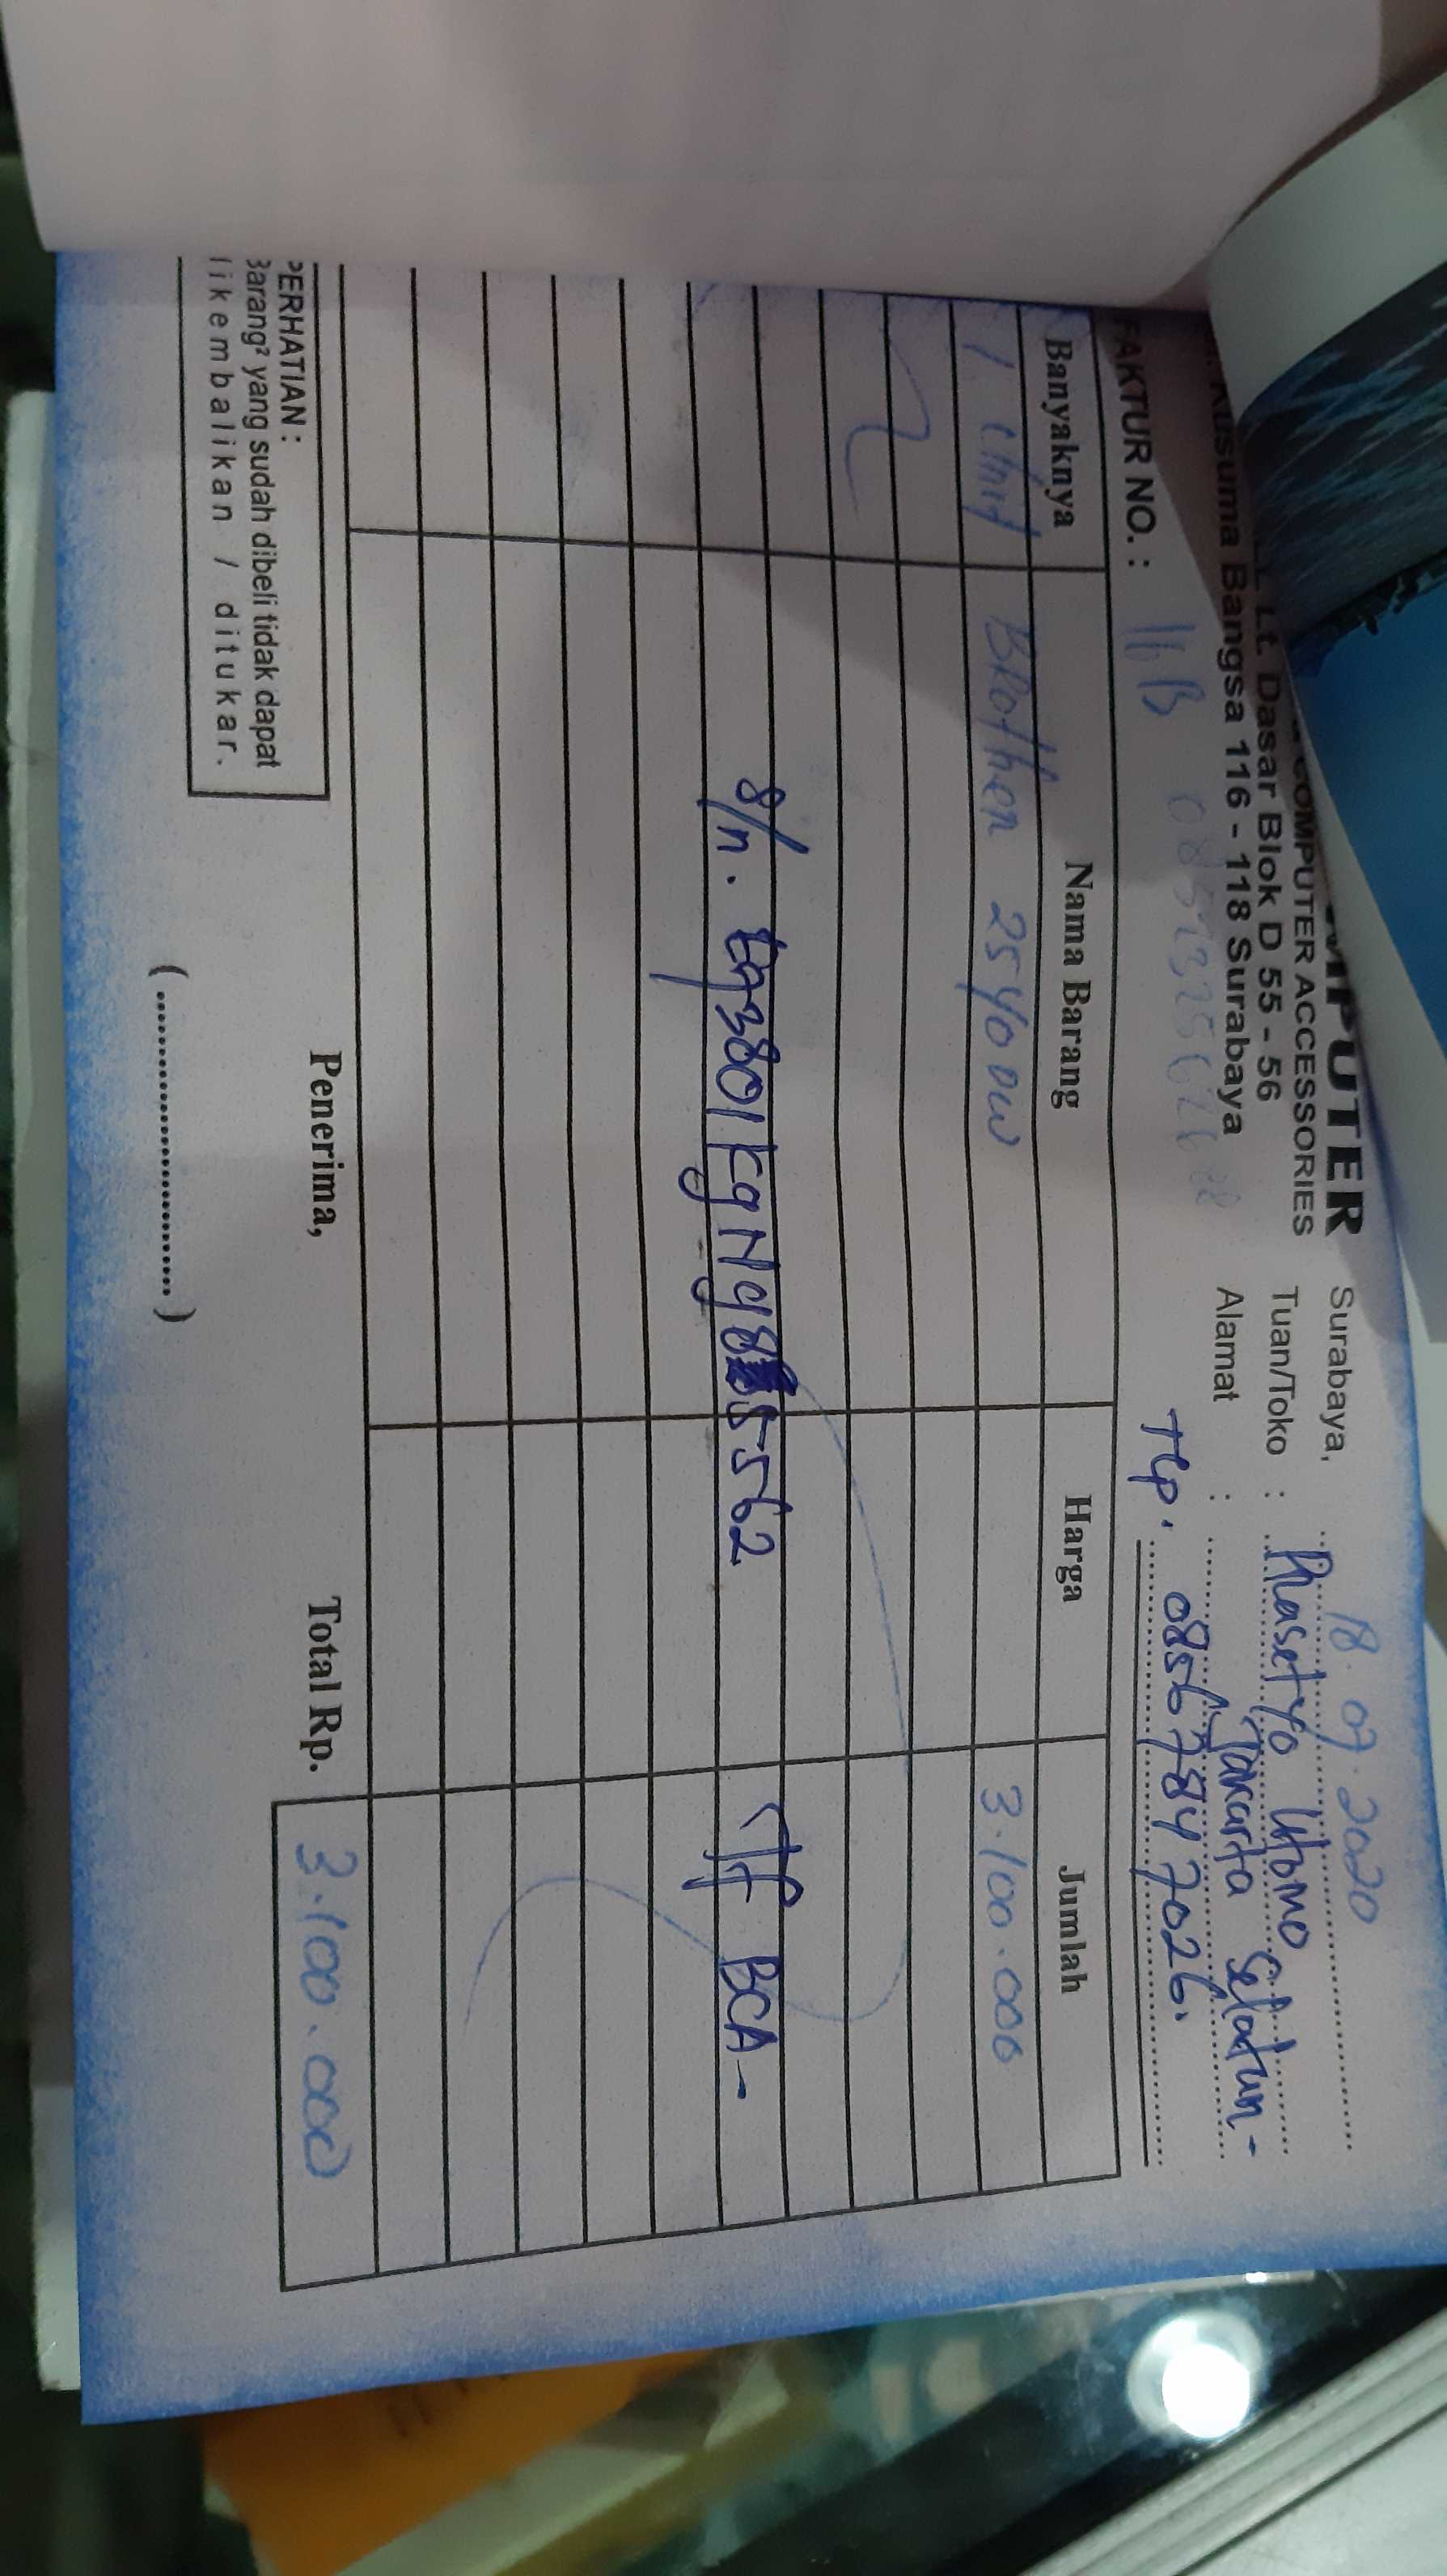 MPUTER
COMPUTER ACCESSORIES
Lt. Dasar Blok D 55 - 56
Kusuma Bangsa 116 - 118 Surabaya
Surabaya, 18.07.2020
Tuan/Toko : Prasetyo Utomo
Alamat : Jakarta Selatan -
Tlp. 0856 784 7026.
FAKTUR NO. :
Banyaknya Nama Barang Harga Jumlah
1 Unit Brother 2540 DW 3.100.000
S/n. BCA -
Total Rp. 3.100.000
Penerima,
(..............................)
PERHATIAN :
Barang² yang sudah dibeli tidak dapat
dikembalikan / ditukar.